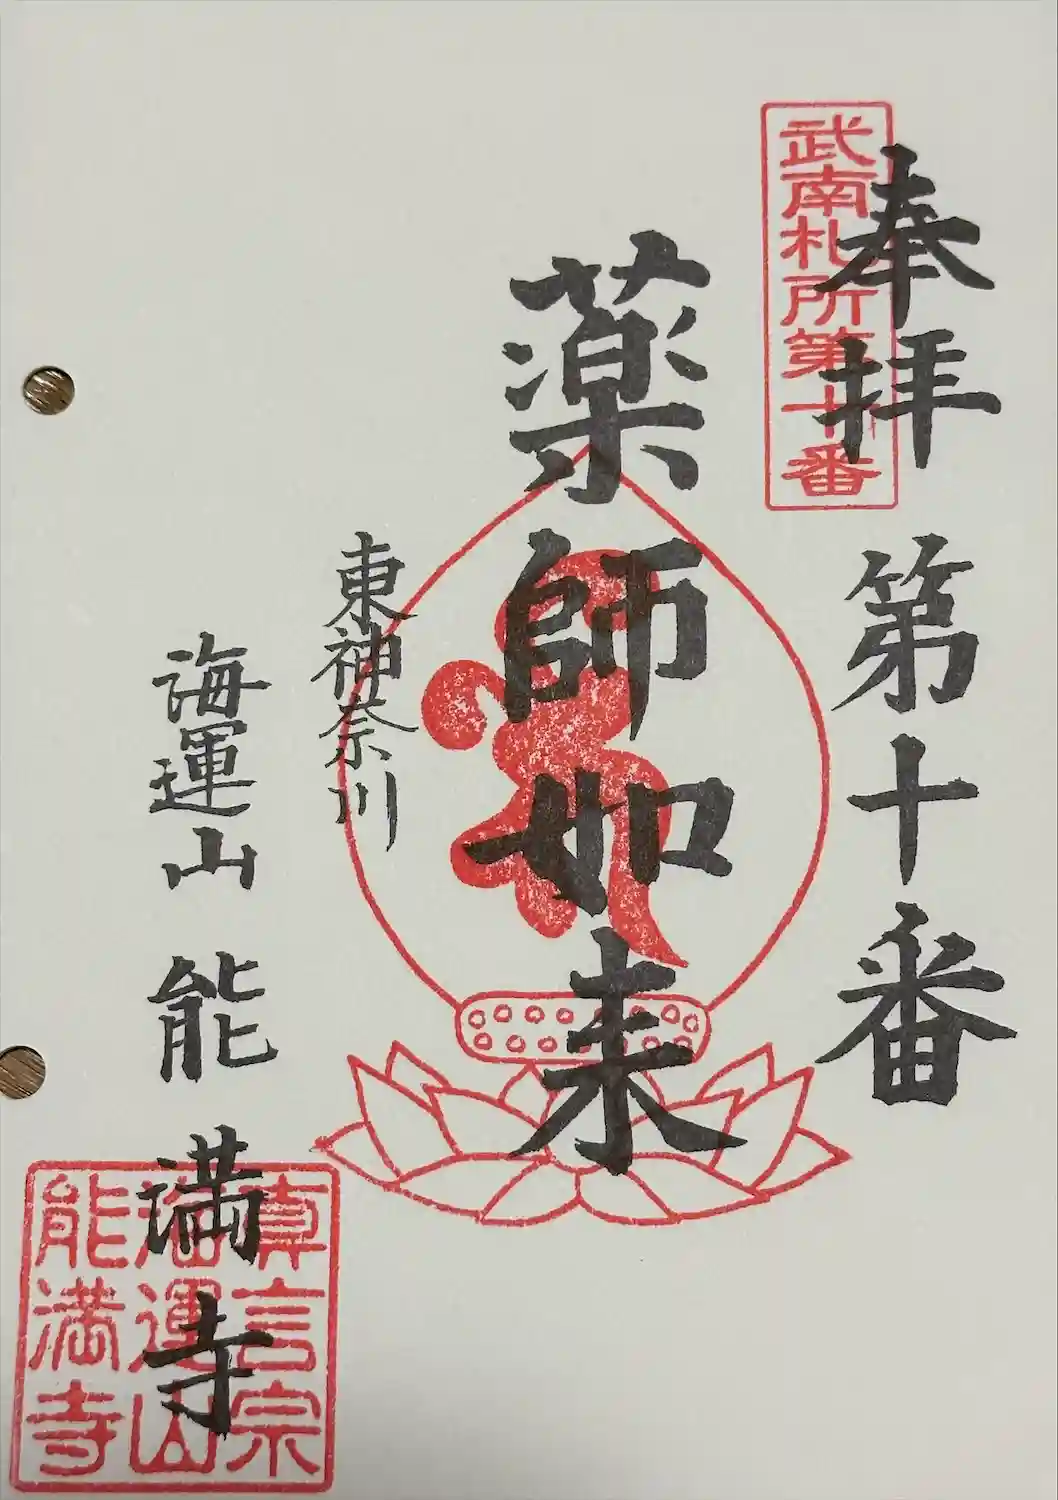 武南札所第十番
奉拝 第十番
薬師如来
東神奈川
海運山 能満寺
真言宗
海運山
能満寺